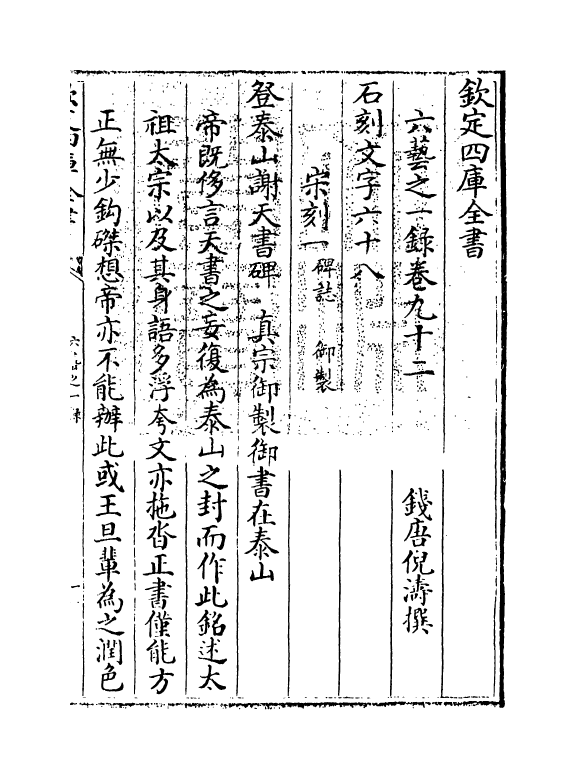 欽定四庫全書
六藝之一錄卷九十二
錢唐倪濤撰
石刻文字六十八
宋刻一 碑誌 御製
登泰山謝天書碑 真宗御製御書在泰山
帝既侈言天書之妄復為泰山之封而作此銘述太
祖太宗以及其身語多浮夸文亦拖沓正書僅能方
正無少鈎磔想帝亦不能辦此或王旦輩為之潤色
六藝之一錄
一